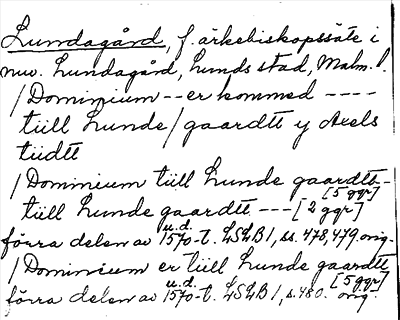 Lundagård, f. ärkebiskopssäte i
nuv. Lundagård, Lunds stad, Malm. l.
/Dominium -- er kommed ----
tüll Lunde/gaardtt y Axels
tüdtt
/Dominium tüll Lunde gaardtt-
tüll Lunde gaardtt --- [2 ggr] [5 ggr]
förra delen av u.d. 1570-t. LSLB1, ss. 478,479 orig.
/Dominium er tüll Lunde gaardtt
förra delen av u.d. 1570-t. LSLB1, s. 480. orig. [5 ggr]